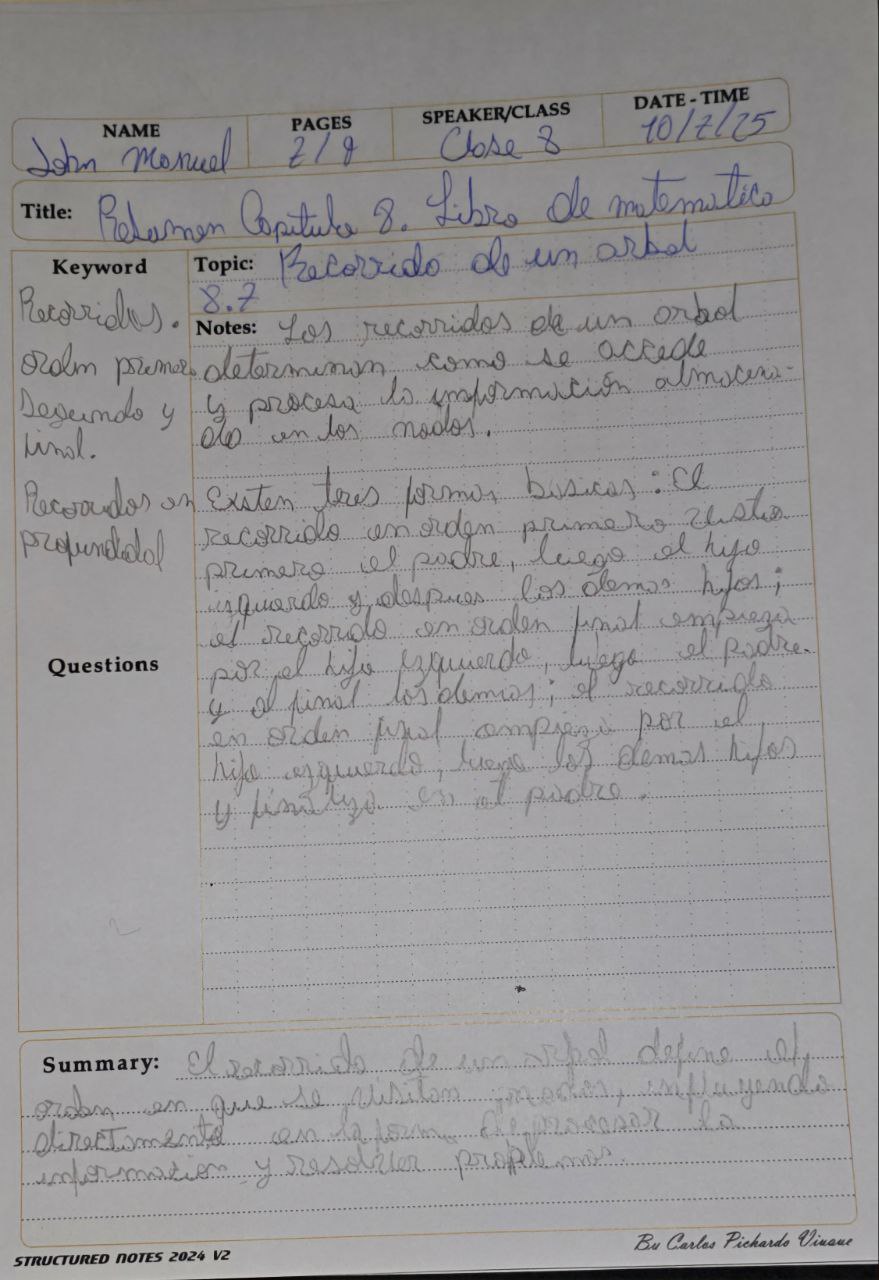 NAME PAGES SPEAKER/CLASS DATE - TIME
John Manuel 2/8 Clase 8 10/7/25
Title: Resumen Capitulo 8. Libro de matematica
Keyword
Topic: Recorrido de un arbol
8.7
Recorridos.
orden primero
Segundo y
final.
Recorridos en
profundidad
Questions
Notes: Los recorridos de un arbol
determinan como se accede
y procesa la información almacena-
da en los nodos.
Existen tres formas basicas: El
recorrido en orden primero visita
primero el padre, luego el hijo
izquierdo y despues los demas hijos;
el recorrido en orden final empieza
por el hijo izquierdo, luego el padre
y al final los demas; el recorrido
en orden final empieza por el
hijo izquierdo, luego los demas hijos
y finaliza en el padre.
Summary: El recorrido de un arbol define el
orden en que se visitan influyendo
directamente en la forma de procesar la
informacion y resolver problemas.
STRUCTURED NOTES 2024 V2
By Carlos Pichardo Viuque